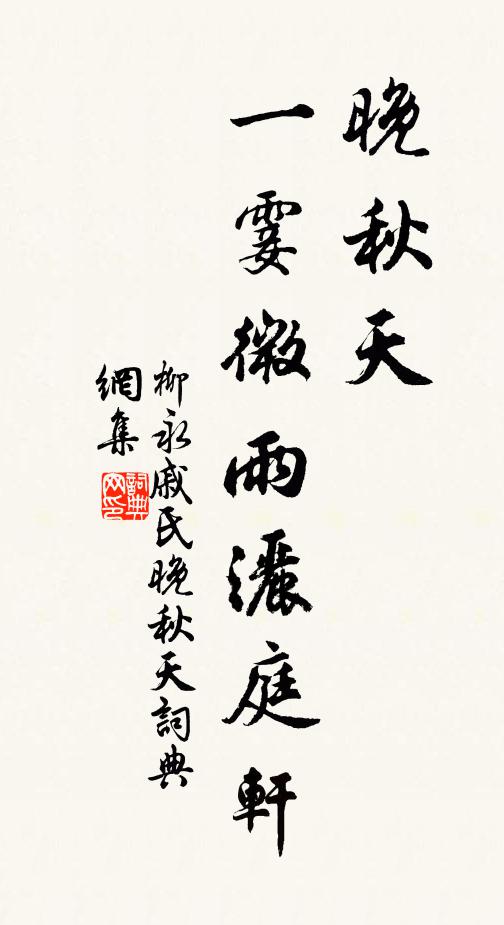 晚秋天
一霎微雨灑庭軒
柳永戚氏晚秋天詞典
網集
詞典
网印